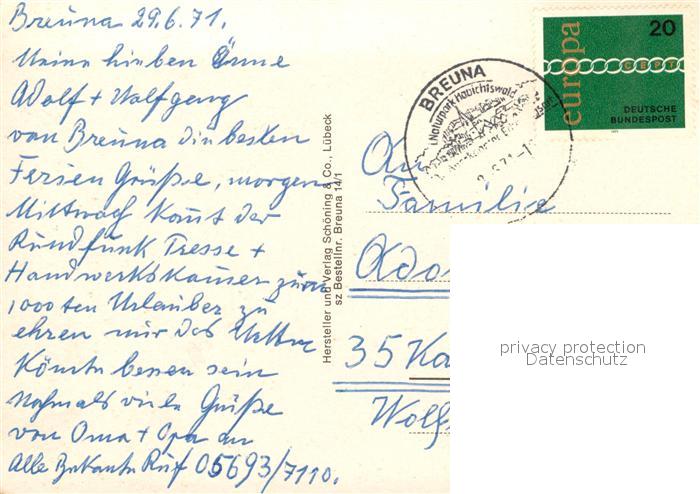 Breuna 29.6.71.
Meine lieben
Adolf + Wolfgang
von Breuna die besten
Ferien Grüße, morgen
Mittwoch komt der
Rundfunk Presse +
Handwerkskammer zum
1000 ten Urlauber zu
ehren nur das Wetter
Könnte besser sein
Nochmals viele Grüße
von Oma + Opa an
Alle Bekante Ruf 05693/7110.
Hersteller und Verlag Schöning & Co., Lübeck
sz Bestellnr. Breuna 14/1
BREUNA
i. Naturpark Habichtswald
europa
20
CEPT
DEUTSCHE
BUNDESPOST
An
Familie
Ado
35 Ka
Wolf
privacy protection
Datenschutz